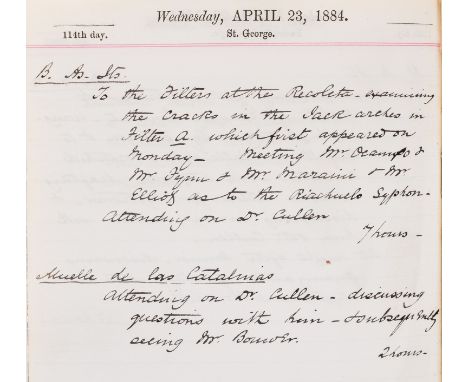 Wednesday, APRIL 23, 1884.
114th day. St. George.
B. As. Sts.
To the Filters at the Recoleta - examining
the cracks in the Jack arches in
Filter A. which first appeared on
Monday - Meeting Mr. Ocampo &
Mr. & Mr. Maraini & Mr
Elliot as to the Riachuelo Syphon -
Attending on Dr. Cullen
7 hours -
Muelle de las Catalinas
Attending on Dr. Cullen - discussing
questions with him - & subsequently
seeing Mr.
2 hours -